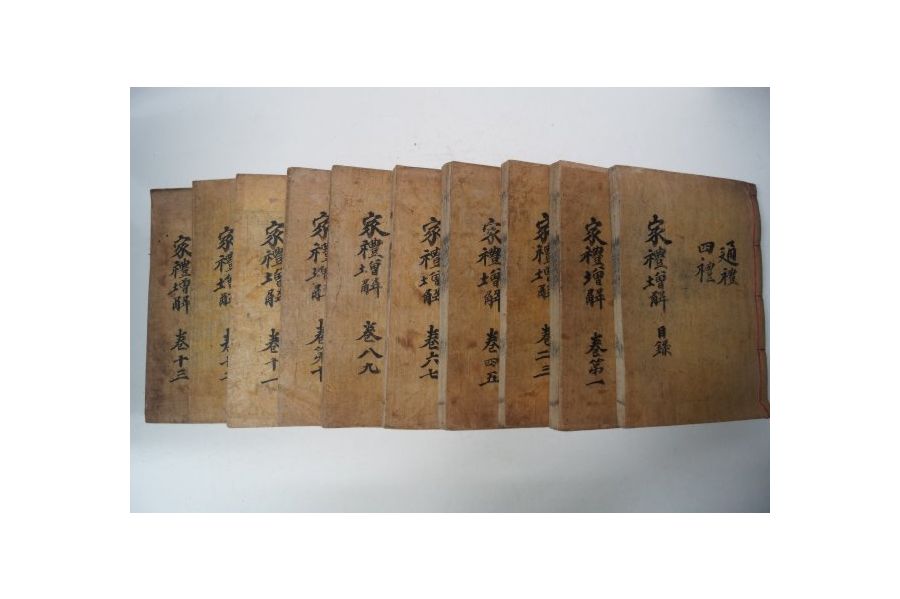 通禮
四禮
家禮增解 目錄
家禮增解 卷第一
家禮增解 卷二三
家禮增解 卷四五
家禮增解 卷六七
家禮增解 卷八九
家禮增解 卷第十
家禮增解 卷十一
家禮增解 卷十二
家禮增解 卷十三